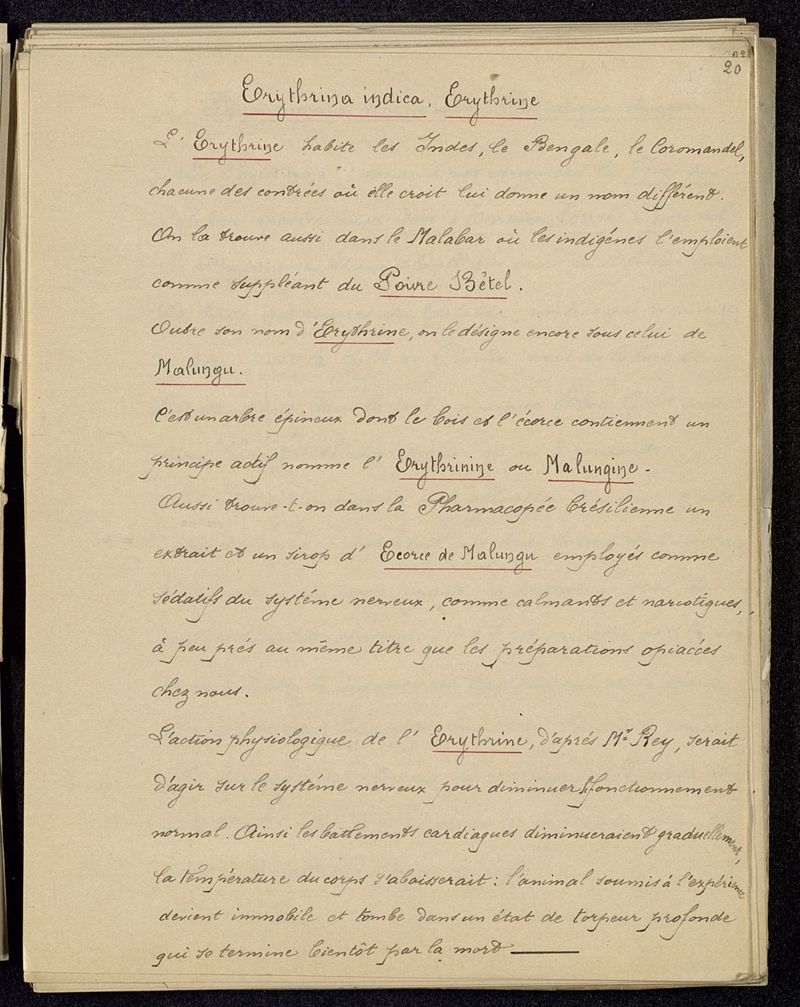 20
Erythrina indica, Erythrine
L'Erythrine habite les Indes, le Bengale, le Coromandel,
chacune des contrées où elle croit lui donne un nom différent.
On la trouve aussi dans le Malabar où les indigénes l'emploient
comme suppléant du Poivre Bétel.
Outre son nom d'Erythrine, on le désigne encore sous celui de
Malungu.
C'est un arbre épineux dont le bois et l'écorce contiennent un
principe actif nomme l'Erythrinine ou Malungine.
Aussi trouve-t-on dans la Pharmacopée brésilienne un
extrait et un sirop d'Ecorce de Malungu employés comme
sédatifs du systéme nerveux, comme calmants et narcotiques,
à peu prés au même titre que les préparations opiacées
chez nous.
L'action physiologique de l'Erythrine, d'aprés Mr Rey, serait
d'agir sur le systéme nerveux pour diminuer fonctionnement
normal. Ainsi les battements cardiaques diminueraient graduellement,
la température du corps s'abaisserait : l'animal soumis à l'expérience
devient immobile et tombe dans un état de torpeur profonde
qui se termine bientôt par la mort